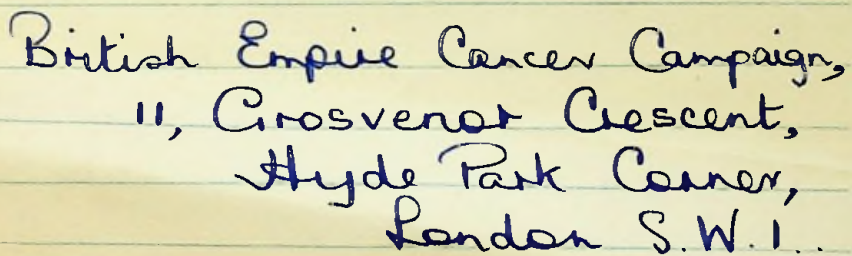 British Empire Cancer Campaign,
11, Grosvenor Crescent,
Hyde Park Corner,
London S.W.1..